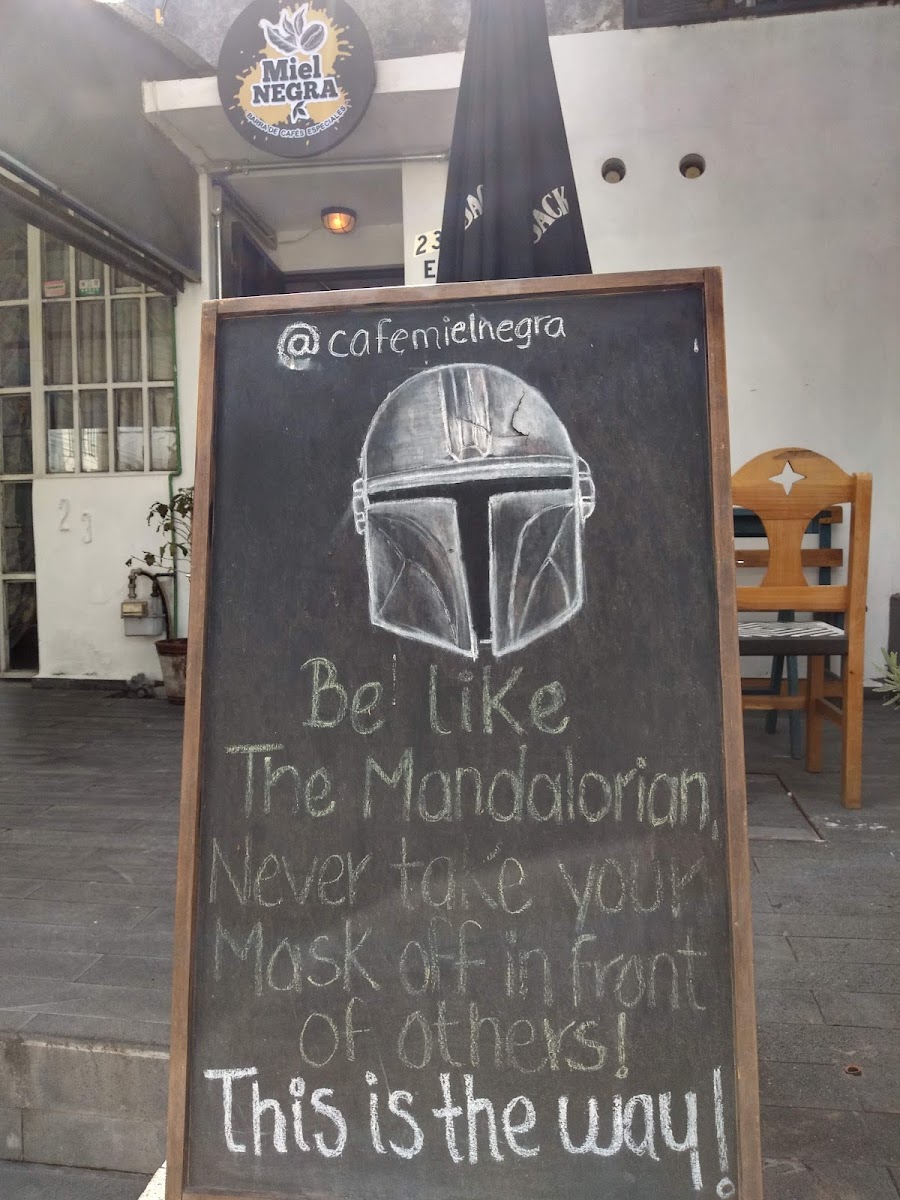 Miel
NEGRA
BARRA DE CAFÉS ESPECIALES
JACK
23
E
23
@cafemielnegra
Be like
The Mandalorian,
Never take your
Mask off in front
of others!
This is the way!